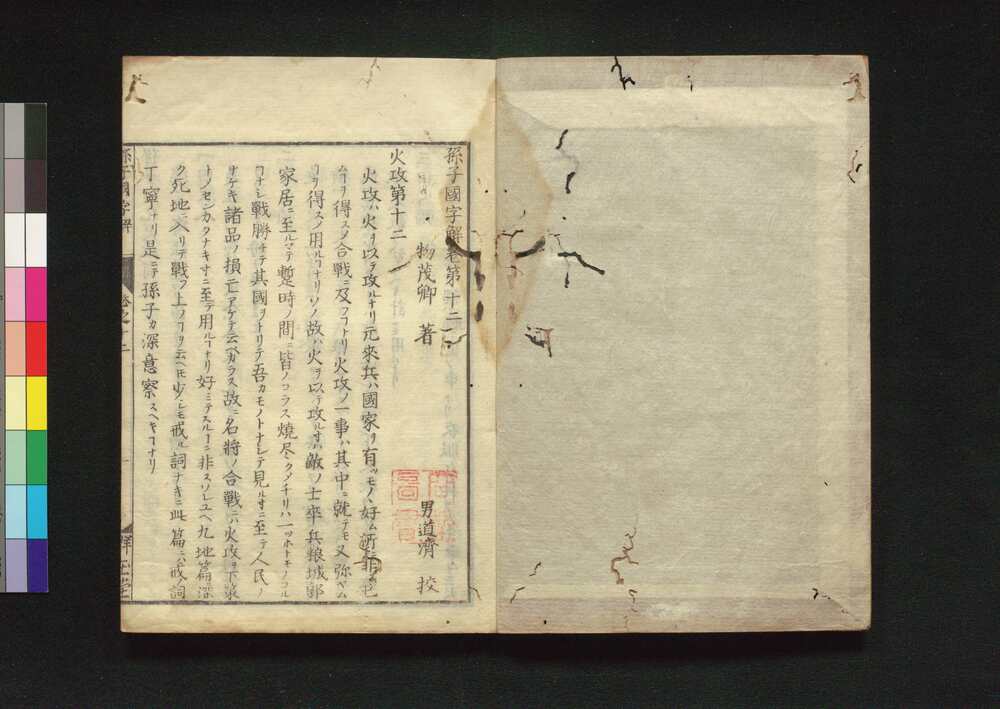 孫子國字解卷第十二
物茂卿 著
男道濟 挍
火攻第十二
火攻ハ火ヲ以テ攻ルナリ元來兵ハ國家ヲ有ツモノヽ好ム所ニ非ス已
ヿヲ得スノ合戰ニ及フヿナリ火攻ノ一事ハ其中ニ就テモ又弥已ム
ヿヲ得スノ用ルヿナリソノ故ハ火ヲ以テ攻ルキハ敵ノ士卒兵粮城郭
家居ニ至ルマテ暫時ノ間ニ皆ノコラス燒尽クメチリハ一ッホトモノコル
ヿナシ戰勝チテ其國ヲトリテ吾カモノトナシテ見ルキニ至テ人民ノ
ナケキ諸品ノ損亡アケテ云ヘカラス故ニ名將ノ合戰ニハ火攻ヲ下策
トノセンカタナキキニ至テ用ルヿナリ好ミテスルヿニ非スソレユヘ九地篇深
ク死地ニ入リテ戰フ上ノヿヲ云ヘ𪜈少シモ戒ル詞ナキニ此篇ニハ戒詞
丁寧ナリ是ニテ孫子カ深意察スヘキヿナリ
孫子國字解
卷之十二